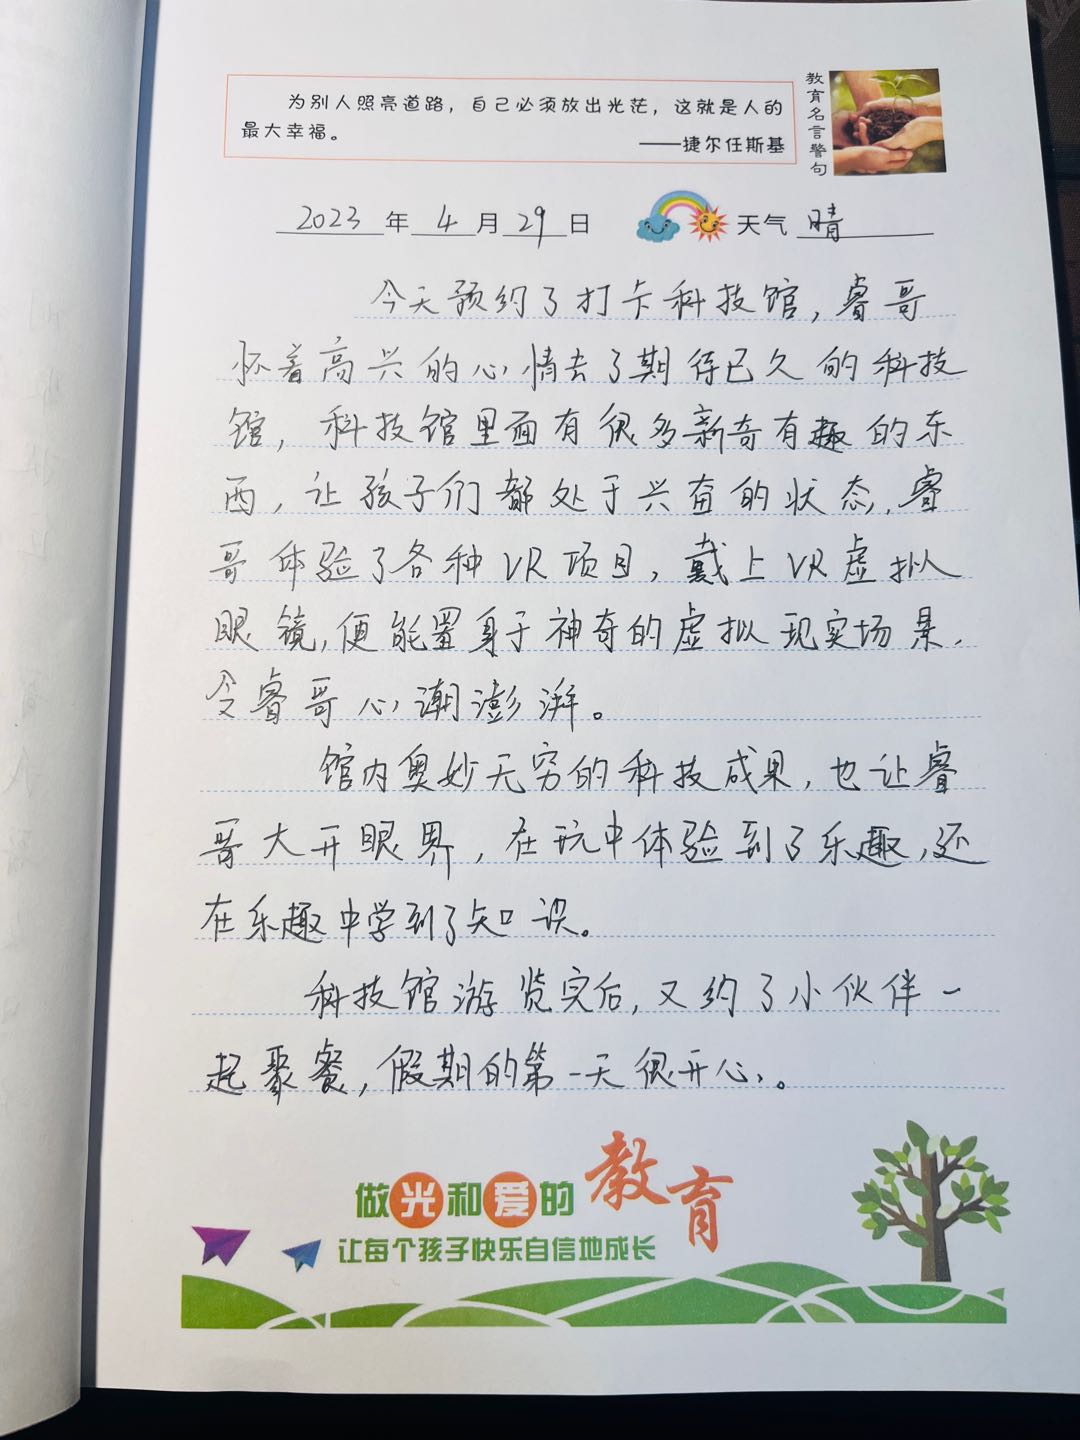 为别人照亮道路，自己必须放出光茫，这就是人的
最大幸福。
——捷尔任斯基
教育名言警句
2023年4月29日 天气 晴
今天预约了打卡科技馆，睿哥
怀着高兴的心情去了期待已久的科技
馆，科技馆里面有很多新奇有趣的东
西，让孩子们都处于兴奋的状态，睿
哥体验了各种VR项目，戴上VR虚拟
眼镜，便能置身于神奇的虚拟现实场景，
令睿哥心潮澎湃。
馆内奥妙无穷的科技成果，也让睿
哥大开眼界，在玩中体验到了乐趣，还
在乐趣中学到了知识。
科技馆游览完后，又约了小伙伴一
起聚餐，假期的第一天很开心。
做光和爱的教育
让每个孩子快乐自信地成长